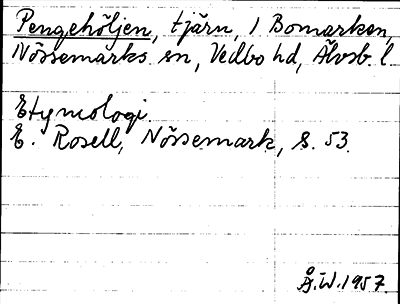 Pengehöljen, tjärn, i Bomarken,
Nössemarks sn, Vedbo hd, Älvsb. l
Etymologi.
E. Rosell, Nössemark, s. 53.
Å.W. 1957.